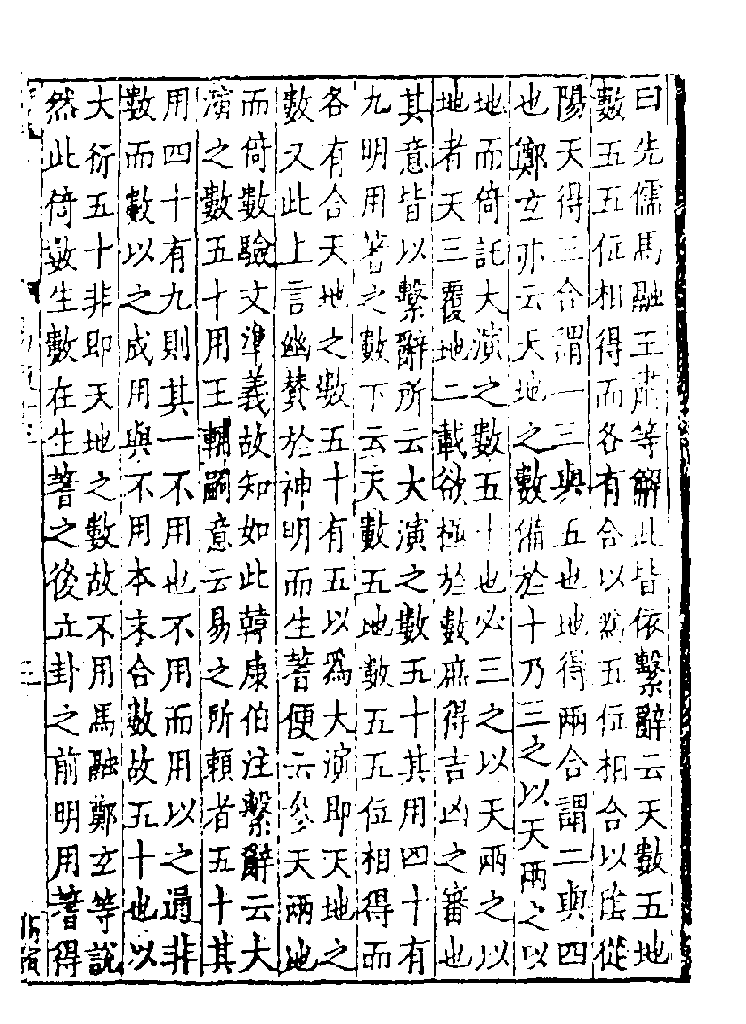 曰先儒馬融王肅等解此皆依繫辭云天數五地
數五五位相得而各有合以為五位相合以陰從
陽天得三合謂一三與五也地得兩合謂二與四
也鄭玄亦云天地之數備於十乃三之以天兩之以
地而倚託大演之數五十也必三之以天兩之以
地者天三覆地二載欲極於數庶得吉凶之審也
其意皆以繫辭所云大演之數五十其用四十有
九明用蓍之數下云天數五地數五五位相得而
各有合天地之數五十有五以為大演即天地之
數又此上言幽贊於神明而生蓍便云參天兩地
而倚數驗文準義故知如此韓康伯注繫辭云大
演之數五十用王輔嗣意云易之所賴者五十其
用四十有九則其一不用也不用而用以之通非
數而數以之成用與不用本末合數故五十也以
大衍五十非即天地之數故不用馬融鄭玄等說
然此倚數生數在生蓍之後立卦之前明用蓍得